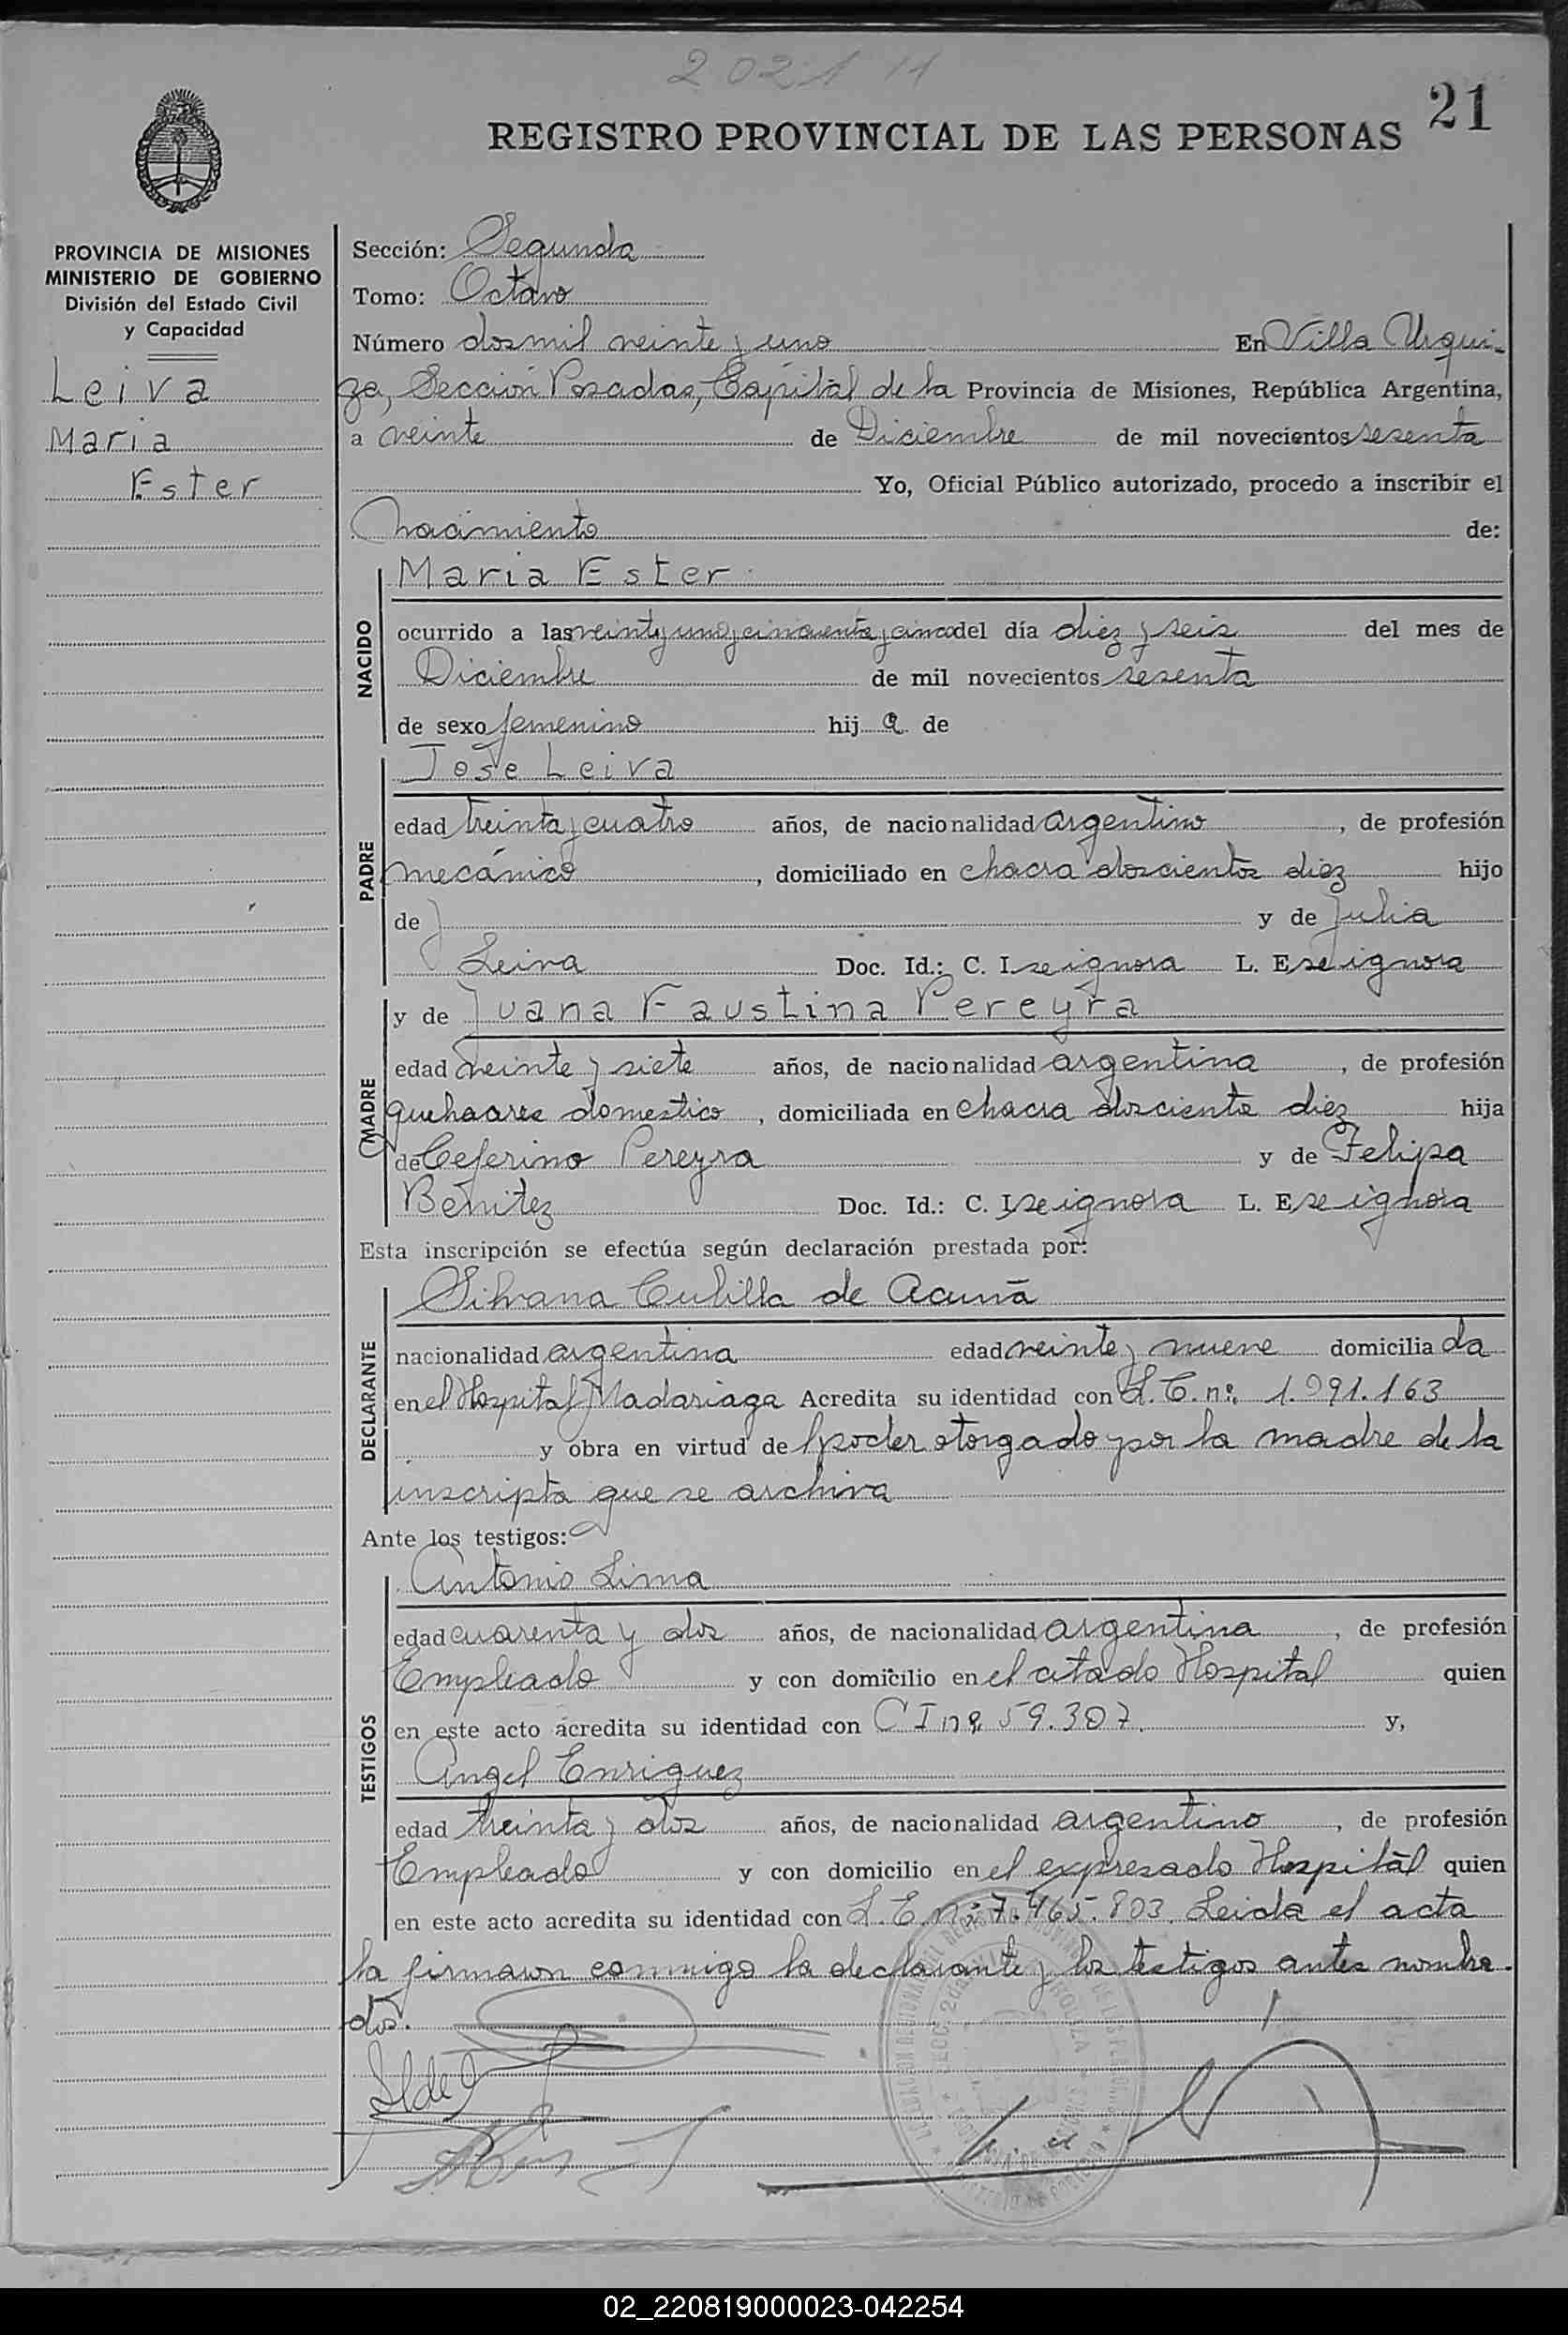 2021 11
21
REGISTRO PROVINCIAL DE LAS PERSONAS
PROVINCIA DE MISIONES
MINISTERIO DE GOBIERNO
División del Estado Civil
y Capacidad
Leiva
Maria
Ester
Sección: Segunda
Tomo: Octavo
Número dos mil veinte y uno En Villa Urqui-
za, Sección Posadas, Capital de la Provincia de Misiones, República Argentina,
a veinte de Diciembre de mil novecientos sesenta
Yo, Oficial Público autorizado, procedo a inscribir el
Nacimiento de:
NACIDO
Maria Ester
ocurrido a las veinte y uno y cincuenta y cinco del día diez y seis del mes de
Diciembre de mil novecientos sesenta
de sexo femenino hij a de
PADRE
Jose Leiva
edad treinta y cuatro años, de nacionalidad argentino, de profesión
mecánico, domiciliado en chacra doscientos diez hijo
de y de Julia
Leiva Doc. Id.: C. I. se ignora L. E. se ignora
MADRE
y de Juana Faustina Pereyra
edad veinte y siete años, de nacionalidad argentina, de profesión
quehaares domestico, domiciliada en chacra doscienta diez hija
de Ceferino Pereyra y de Felipa
Benitez Doc. Id.: C. I. se ignora L. E. se ignora
Esta inscripción se efectúa según declaración prestada por:
DECLARANTE
Silvana Cubilla de Acuña
nacionalidad argentina edad veinte y nueve domicilia da
en el Hospital Madariaga Acredita su identidad con L.C. nº. 1.991.163
y obra en virtud de poder otorgado por la madre de la
inscripta que se archiva
Ante los testigos:
TESTIGOS
Antonio Lima
edad cuarenta y dos años, de nacionalidad argentina, de profesión
Empleado y con domicilio en el citado Hospital quien
en este acto acredita su identidad con C I nº 59.307. y,
Angel Enriquez
edad treinta y dos años, de nacionalidad argentino, de profesión
Empleado y con domicilio en el expresado Hospital quien
en este acto acredita su identidad con L.E. nº 7.465.803. Leida el acta
la firmaron conmigo la declarante y los testigos antes nombra-
dos.
02_220819000023-042254